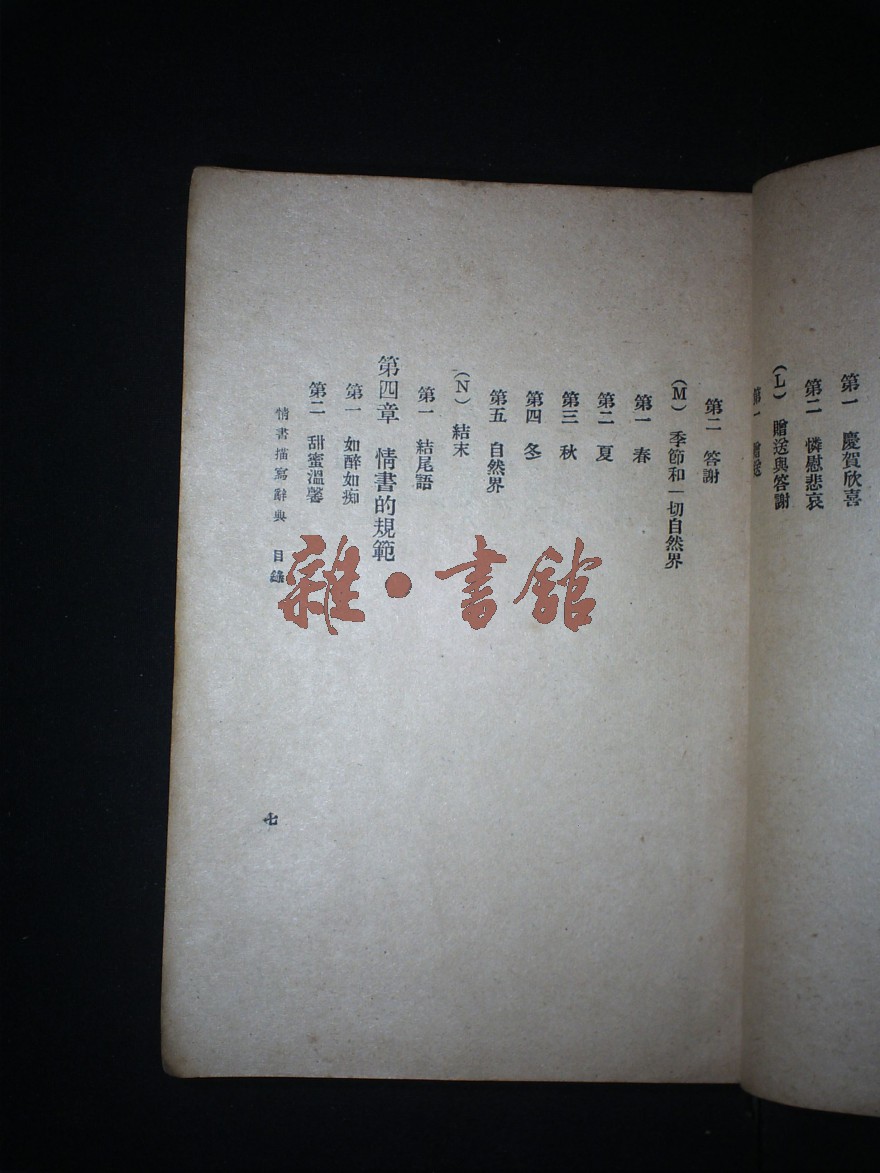 第一　慶賀欣喜
第二　憐慰悲哀
(L)　贈送與答謝
第一　贈送
第二　答謝
(M)　季節和一切自然界
第一　春
第二　夏
第三　秋
第四　冬
第五　自然界
(N)　結末
第一　結尾語
第四章　情書的規範
第一　如醉如痴
第二　甜蜜溫馨
情書描寫辭典　目錄
七
雜・書館